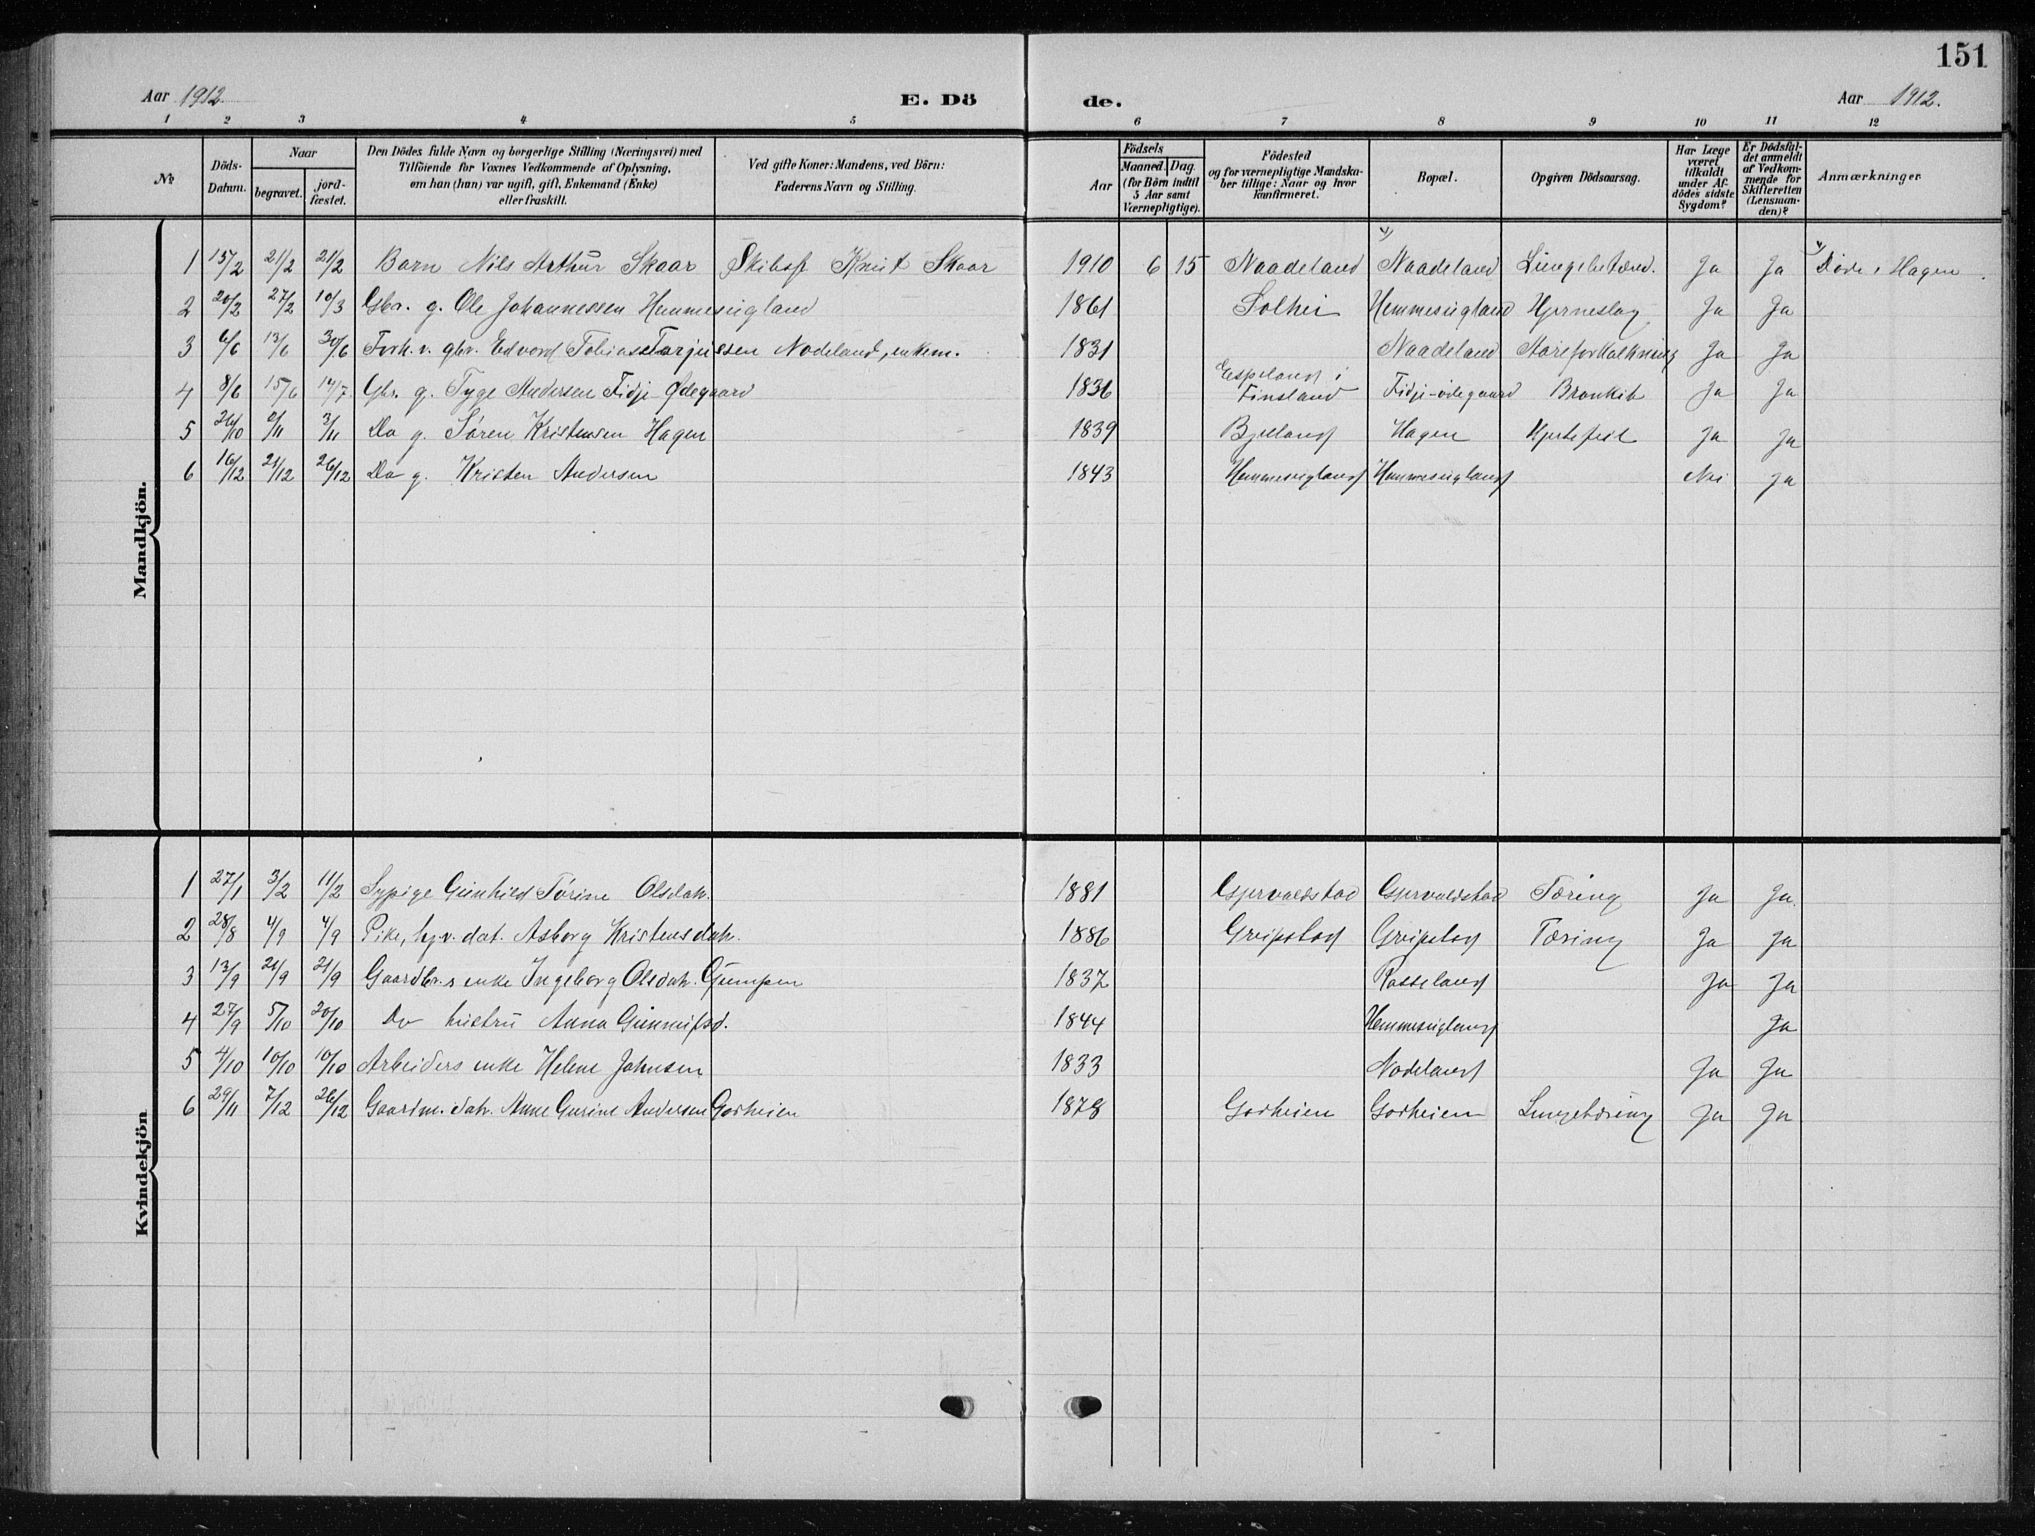 151
Aar 1912. E. Dö de. Aar 1912.
1 2 3 4 5 6 7 8 9 10 11 12
№ Döds-Datum. Naar begravet. jord-fæstet. Den Dödes fulde Navn og borgerlige Stilling (Næringsvei) med Tilföiende for Voxnes Vedkommende af Oplysning, om han (hun) var ugift, gift, Enkemand (Enke) eller fraskilt. Ved gifte Koner: Mandens, ved Börn: Faderens Navn og Stilling. Aar Födsels Maaned. Dag. (for Börn indtil 5 Aar samt Værnepligtige). Födested og for værnepligtige Mandskaber tillige: Naar og hvor konfirmeret. Bopæl. Opgiven Dödsaarsag. Har Læge været tilkaldt under Afdödes sidste Sygdom? Er Dödsfaldet anmeldt af Vedkommende for Skifteretten (Lensmanden)? Anmærkninger
Mandkjön.
1 15/2 21/2 21/2 Barn Nils Arthur Skaar Skibsf Knut Skaar 1910 6 15 Naadeland Naadeland Lungebetænd. Ja Ja Døde i Hagen.
2 20/2 27/2 10/3 Gbr. g. Ole Johannessen Hemmesvigland 1861 Solhei Hemmesvigland Hjerneslag Ja Ja
3 6/6 13/6 30/6 Forh. v. gbr. Edvard Tobias Tarjussen Nodeland, enkem. 1831 Naadeland Aareforkalkning Ja Ja
4 8/6 15/6 14/7 Gbr. g. Tyge Andersen Fidje Ødegaard 1836 Espeland i Finsland Fidje-ødegaard Bronkit Ja Ja
5 26/10 2/11 3/11 Do g. Søren Kristensen Hagen 1839 Bjelland Hagen Hjertefeil Ja Ja
6 16/12 21/12 26/12 Do g. Kristen Andersen 1843 Hemmesvigland Hemmesvigland Nei Ja
Kvindekjön
1 27/1 3/2 11/2 Sypige Gunhild Tørine Olsdatr. 1881 Gjervaldstad Gjervaldstad Tæring Ja Ja.
2 28/8 4/9 4/9 Pike, hj.v. dat. Asborg Kristensdatr. 1886 Greipstad Greipstad Tæring Ja Ja
3 13/9 21/9 21/9 Gaardbr.s enke Ingeborg Olsdatr. Gumpen 1837 Rosseland Ja Ja
4 27/9 5/10 20/10 Do hustru Anna Gunnufsd. 1844 Hemmesvigland Ja
5 4/10 10/10 10/10 Arbeiders enke Helene Johnsen 1833 Nodeland Ja Ja
6 29/11 7/12 26/12 Gaardm. datr. Anne Gurine Andersen Godheien 1878 Godheien Godheien Lungetæring Ja Ja